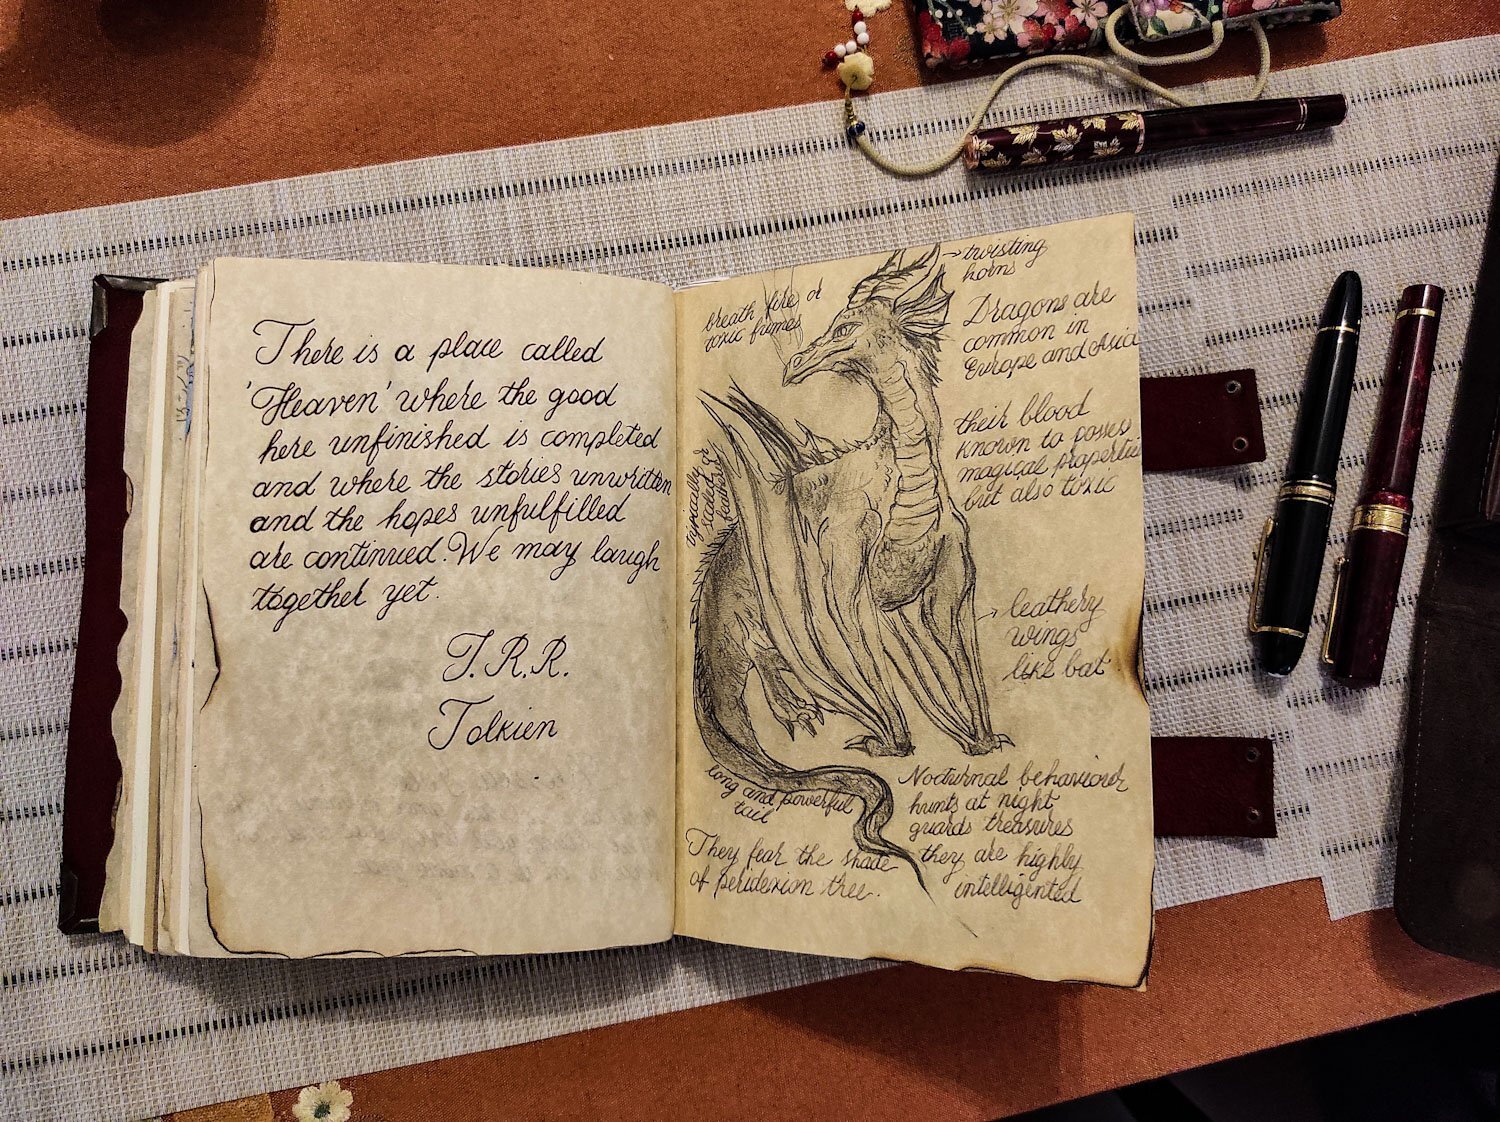 There is a place called
'Heaven' where the good
here unfinished is completed
and where the stories unwritten
and the hopes unfulfilled
are continued. We may laugh
together yet.
J.R.R.
Tolkien
breath fire or
toxic fumes
twisting
horns
Dragons are
common in
Europe and Asia
their blood
known to posses
magical properties
but also toxic
typically
scaled or
feathered
leathery
wings
like bat
long and powerful
tail
Nocturnal behaviour
hunts at night
guards treasures
they are highly
intelligented
They fear the shade
of peridexion tree.